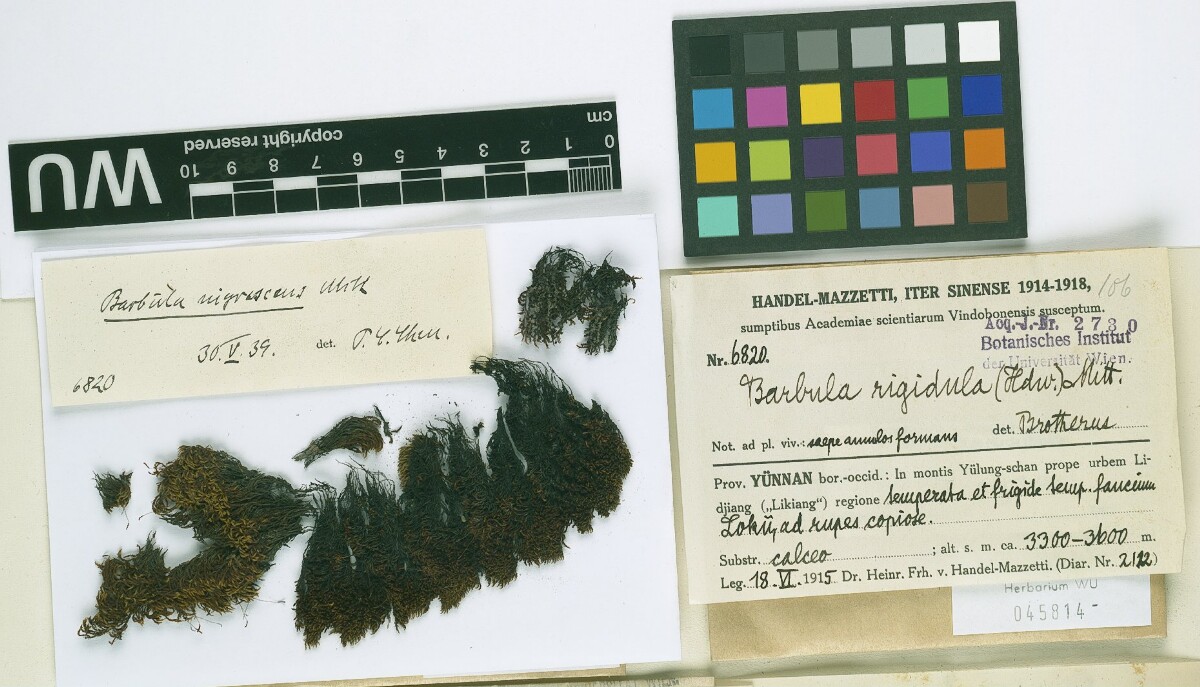 WU
copyright reserved
cm
10 9 8 7 6 5 4 3 2 1 0
Barbula nigrescens Mitt
30.V.39. det. P. C. Chen.
6820
HANDEL-MAZZETTI, ITER SINENSE 1914-1918, 106
sumptibus Academiae scientiarum Vindobonensis susceptum.
Acq.-J.-Nr. 2730
Botanisches Institut
der Universität Wien.
Nr. 6820.
Barbula rigidula (Hdw.) Mitt.
Not. ad pl. viv.: saepe annulos formans det. Brotherus
Prov. YÜNNAN bor.-occid.: In montis Yülung-schan prope urbem Li-
djiang („Likiang“) regione temperata et frigide temp. faucium
Lokü, ad rupes copiose.
Substr. calceo ; alt. s. m. ca. 3300–3600 m.
Leg. 18.VI.1915 Dr. Heinr. Frh. v. Handel-Mazzetti. (Diar. Nr. 2122)
Herbarium WU
045814-